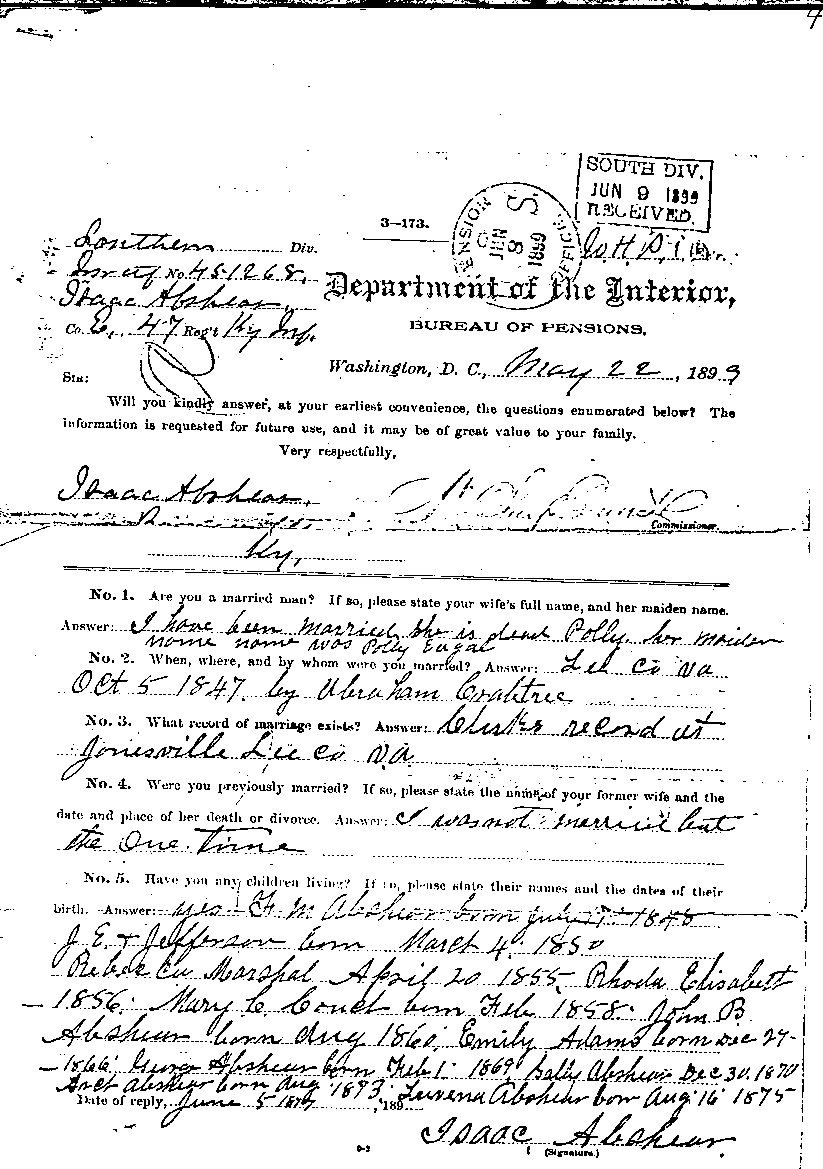 4
SOUTH DIV.
JUN 9 1899
RECEIVED.
3—173.
PENSION OFFICE
JUN 8 1899
U.S.
Southern Div.
No. 451268.
Isaac Abshear,
Co. E, 47 Reg't Ky Inf.
Department of the Interior,
BUREAU OF PENSIONS,
Washington, D. C., May 22, 1899
SIR:
Will you kindly answer, at your earliest convenience, the questions enumerated below? The
information is requested for future use, and it may be of great value to your family.
Very respectfully,
Isaac Abshear,
Commissioner.
Ky,
No. 1. Are you a married man? If so, please state your wife's full name, and her maiden name.
Answer: I have been married she is dead Polly her maiden
name name was Polly
No. 2. When, where, and by whom were you married? Answer: Lee Co va
Oct 5 1847, by Abraham Crabtree
No. 3. What record of marriage exists? Answer: Clerks record at
Jonesville Lee co va
No. 4. Were you previously married? If so, please state the name of your former wife and the
date and place of her death or divorce. Answer: I was not married but
the One time
No. 5. Have you any children living? If so, please state their names and the dates of their
birth. Answer: yes F M Abshear born July 1848
J. E. + Jefferson born March 4, 1850
Rebecca Marshal April 20 1855, Rhoda Elisabeth
1856, Mary C Couch born Feb 1858 John B
Abshear born Aug 1860, Emily Adams born Dec 27
1866, George Abshear born Feb 1 1869 Sally Abshear Dec 30, 1870
Abshear born Aug 1873, Luvena Abshear born Aug 16 1875
Date of reply, June 5 1899, 189
Isaac Abshear.
(Signature.)